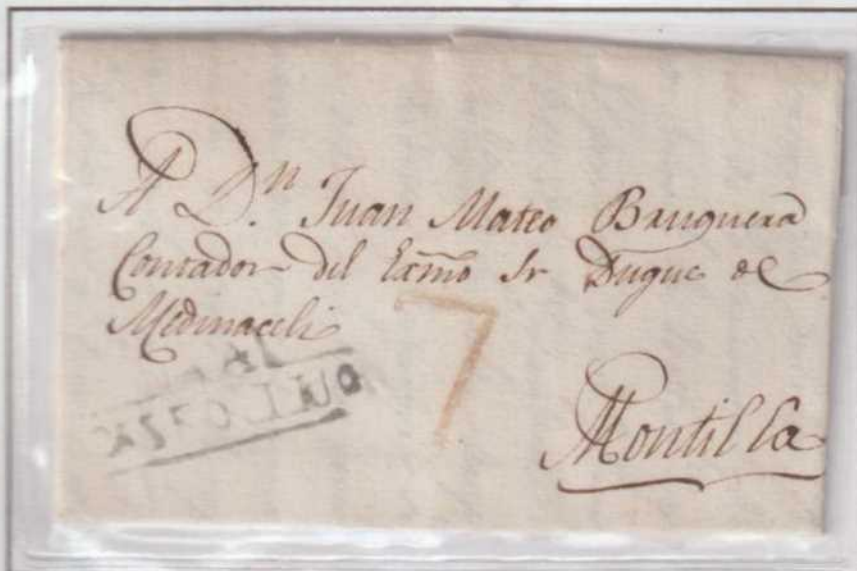 A D.n Juan Mateo Bruguera
Contador del Exmo Sr Duque de
Medinaceli
7
Montilla